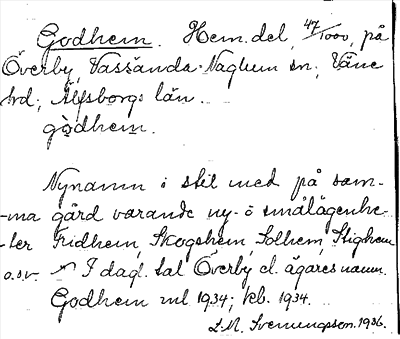 Godhem. Hem.del, 47/1000, på
Överby, Vassända-Naglum sn; Väne
hd; Älfsborgs län.
gòdhem.
Nynamn i stil med på sam-
-ma gård varande ny- o smålägenhe-
-ter Fridhem, Skogshem, Solhem, Stighem
o.s.v. I dagl. tal Överby el. ägares namn.
Godhem ml 1934; kb. 1934.
L.M. Svenungsson. 1936.